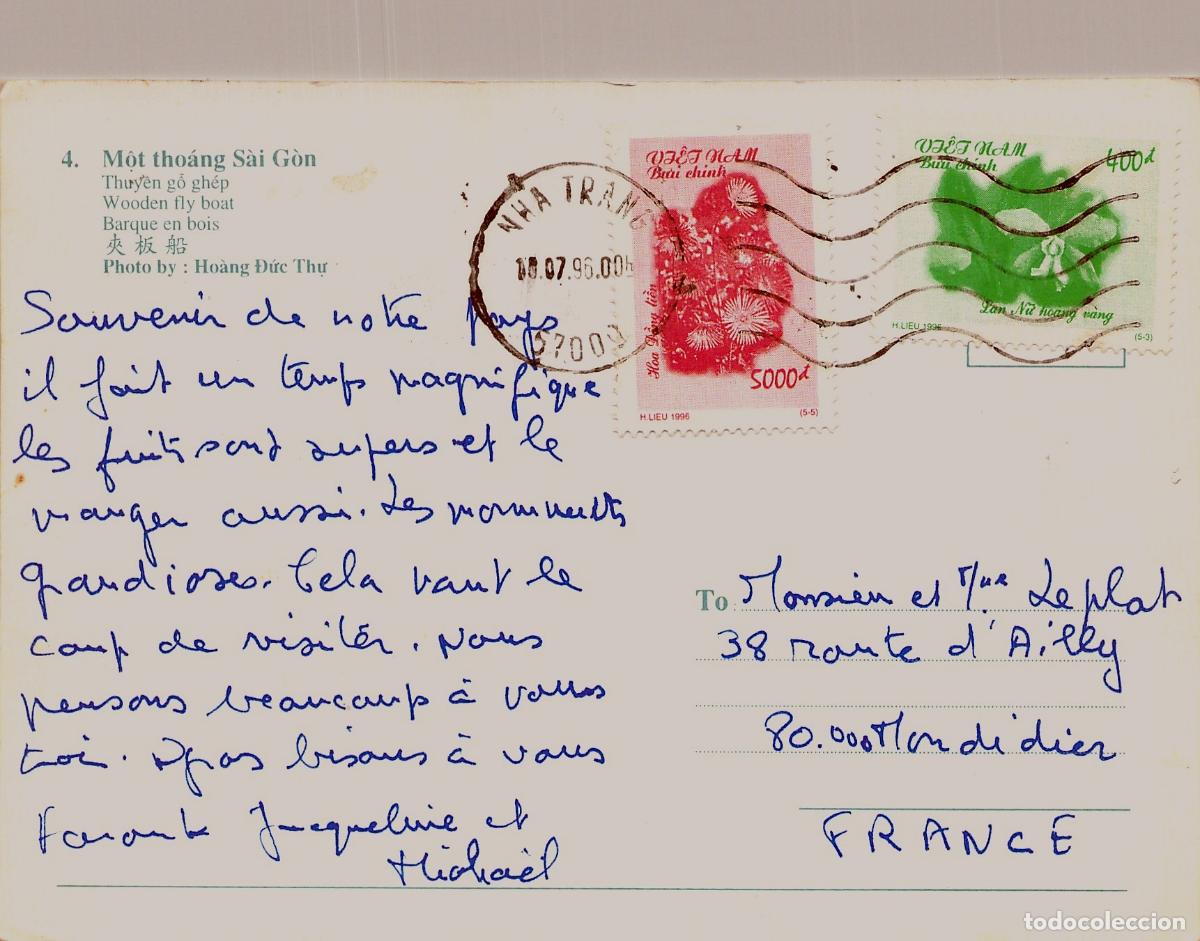 4. Một thoáng Sài Gòn
Thuyền gỗ ghép
Wooden fly boat
Barque en bois
夾板船
Photo by : Hoàng Đức Thự
NHA TRANG
10.07.96.00h
57000
VIỆT NAM
Bưu chính
Hoa Đồng tiền
5000đ
H.LIEU 1996
(5-5)
VIỆT NAM
Bưu chính
400đ
Lan Nữ hoàng vàng
H.LIEU 1996
(5-3)
Souvenir de notre pays
il fait un temps magnifique
les fruits sont supers et le
manger aussi. Les monuments
grandioses. Cela vaut le
coup de visiter. Nous
pensons beaucoup à vous
trois. Gros bisous à vous
Jacqueline et
Michaël
To Monsieur et Mme Leplat
38 route d'Ailly
80.000 Mondidier
FRANCE
todocoleccion